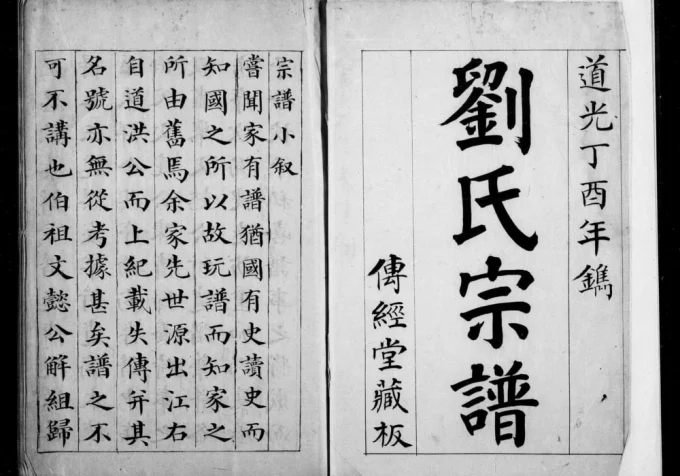 道光丁酉年鐫
劉氏宗譜
傳經堂藏板
宗譜小叙
嘗聞家有譜猶國有史讀史而
知國之所以故玩譜而知家之
所由舊焉余家先世源出江右
自道洪公而上紀載失傳并其
名號亦無從考據甚矣譜之不
可不講也伯祖文懿公解組歸